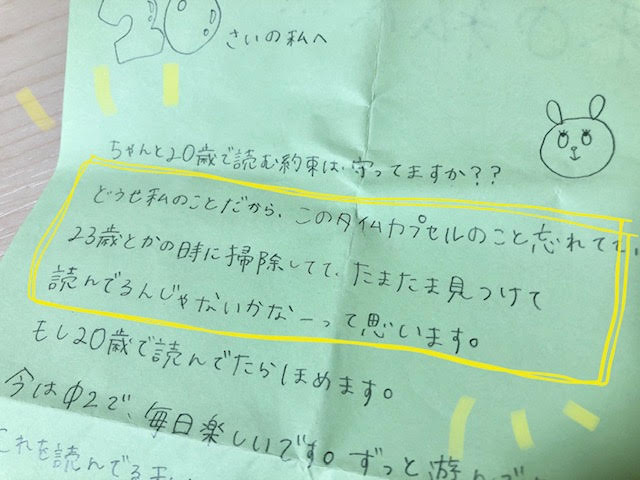 20さいの私へ
ちゃんと20歳で読む約束は、守ってますか??
どうせ私のことだから、このタイムカプセルのこと忘れてて、
23歳とかの時に掃除してて、たまたま見つけて
読んでるんじゃないかなーって思います。
もし20歳で読んでたらほめます。
今は中2で、毎日楽しいです。ずっと遊んで
これを読んでる